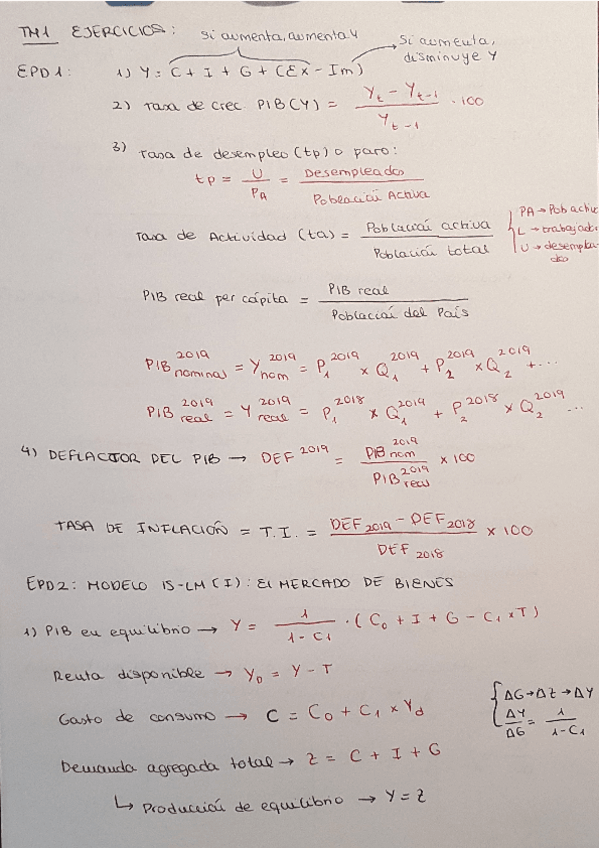 TM1 EJERCICIOS: Si aumenta, aumenta Y
Si aumenta, disminuye Y
EPD1: 1) Y = C + I + G + (Ex - Im)
2) Tasa de crec. PIB (Y) = (Y_t - Y_{t-1}) / Y_{t-1} · 100
3) Tasa de desempleo (tp) o paro:
tp = U / PA = Desempleados / Población Activa
Tasa de Actividad (ta) = Población activa / Población total
PA → Pob activ
L → trabajad
U → desemplea-
dos
PIB real per cápita = PIB real / Población del País
PIB nominal^2019 = Y nom^2019 = P_1^2019 x Q_1^2019 + P_2^2019 x Q_2^2019 + ...
PIB real^2019 = Y real^2019 = P_1^2018 x Q_1^2019 + P_2^2018 x Q_2^2019 ...
4) DEFLACTOR DEL PIB → DEF^2019 = PIB nom^2019 / PIB real^2019 x 100
TASA DE INFLACIÓN = T.I. = (DEF 2019 - DEF 2018) / DEF 2018 x 100
EPD2: MODELO IS-LM (I): El MERCADO DE BIENES
1) PIB en equilibrio → Y = 1 / (1 - C1) · (C0 + I + G - C1 x T)
Renta disponible → Y_D = Y - T
Gasto de consumo → C = C0 + C1 x Yd
ΔG → ΔZ → ΔY
ΔY / ΔG = 1 / (1 - C1)
Demanda agregada total → Z = C + I + G
↳ Producción de equilibrio → Y = Z